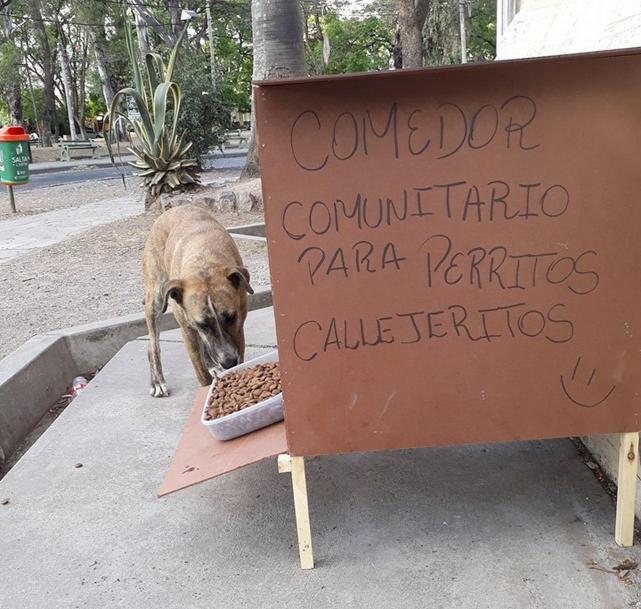 COMEDOR
COMUNITARIO
PARA PERRITOS
CALLEJERITOS
SALTA